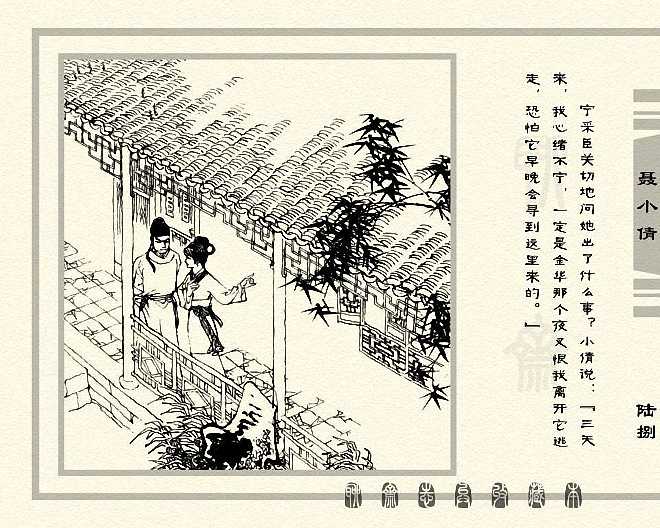 聂小倩
陆捌
宁采臣关切地问她出了什么事？小倩说：“三天
来，我心绪不宁，一定是金华那个夜叉恨我离开它逃
走，恐怕它早晚会寻到这里来的。”